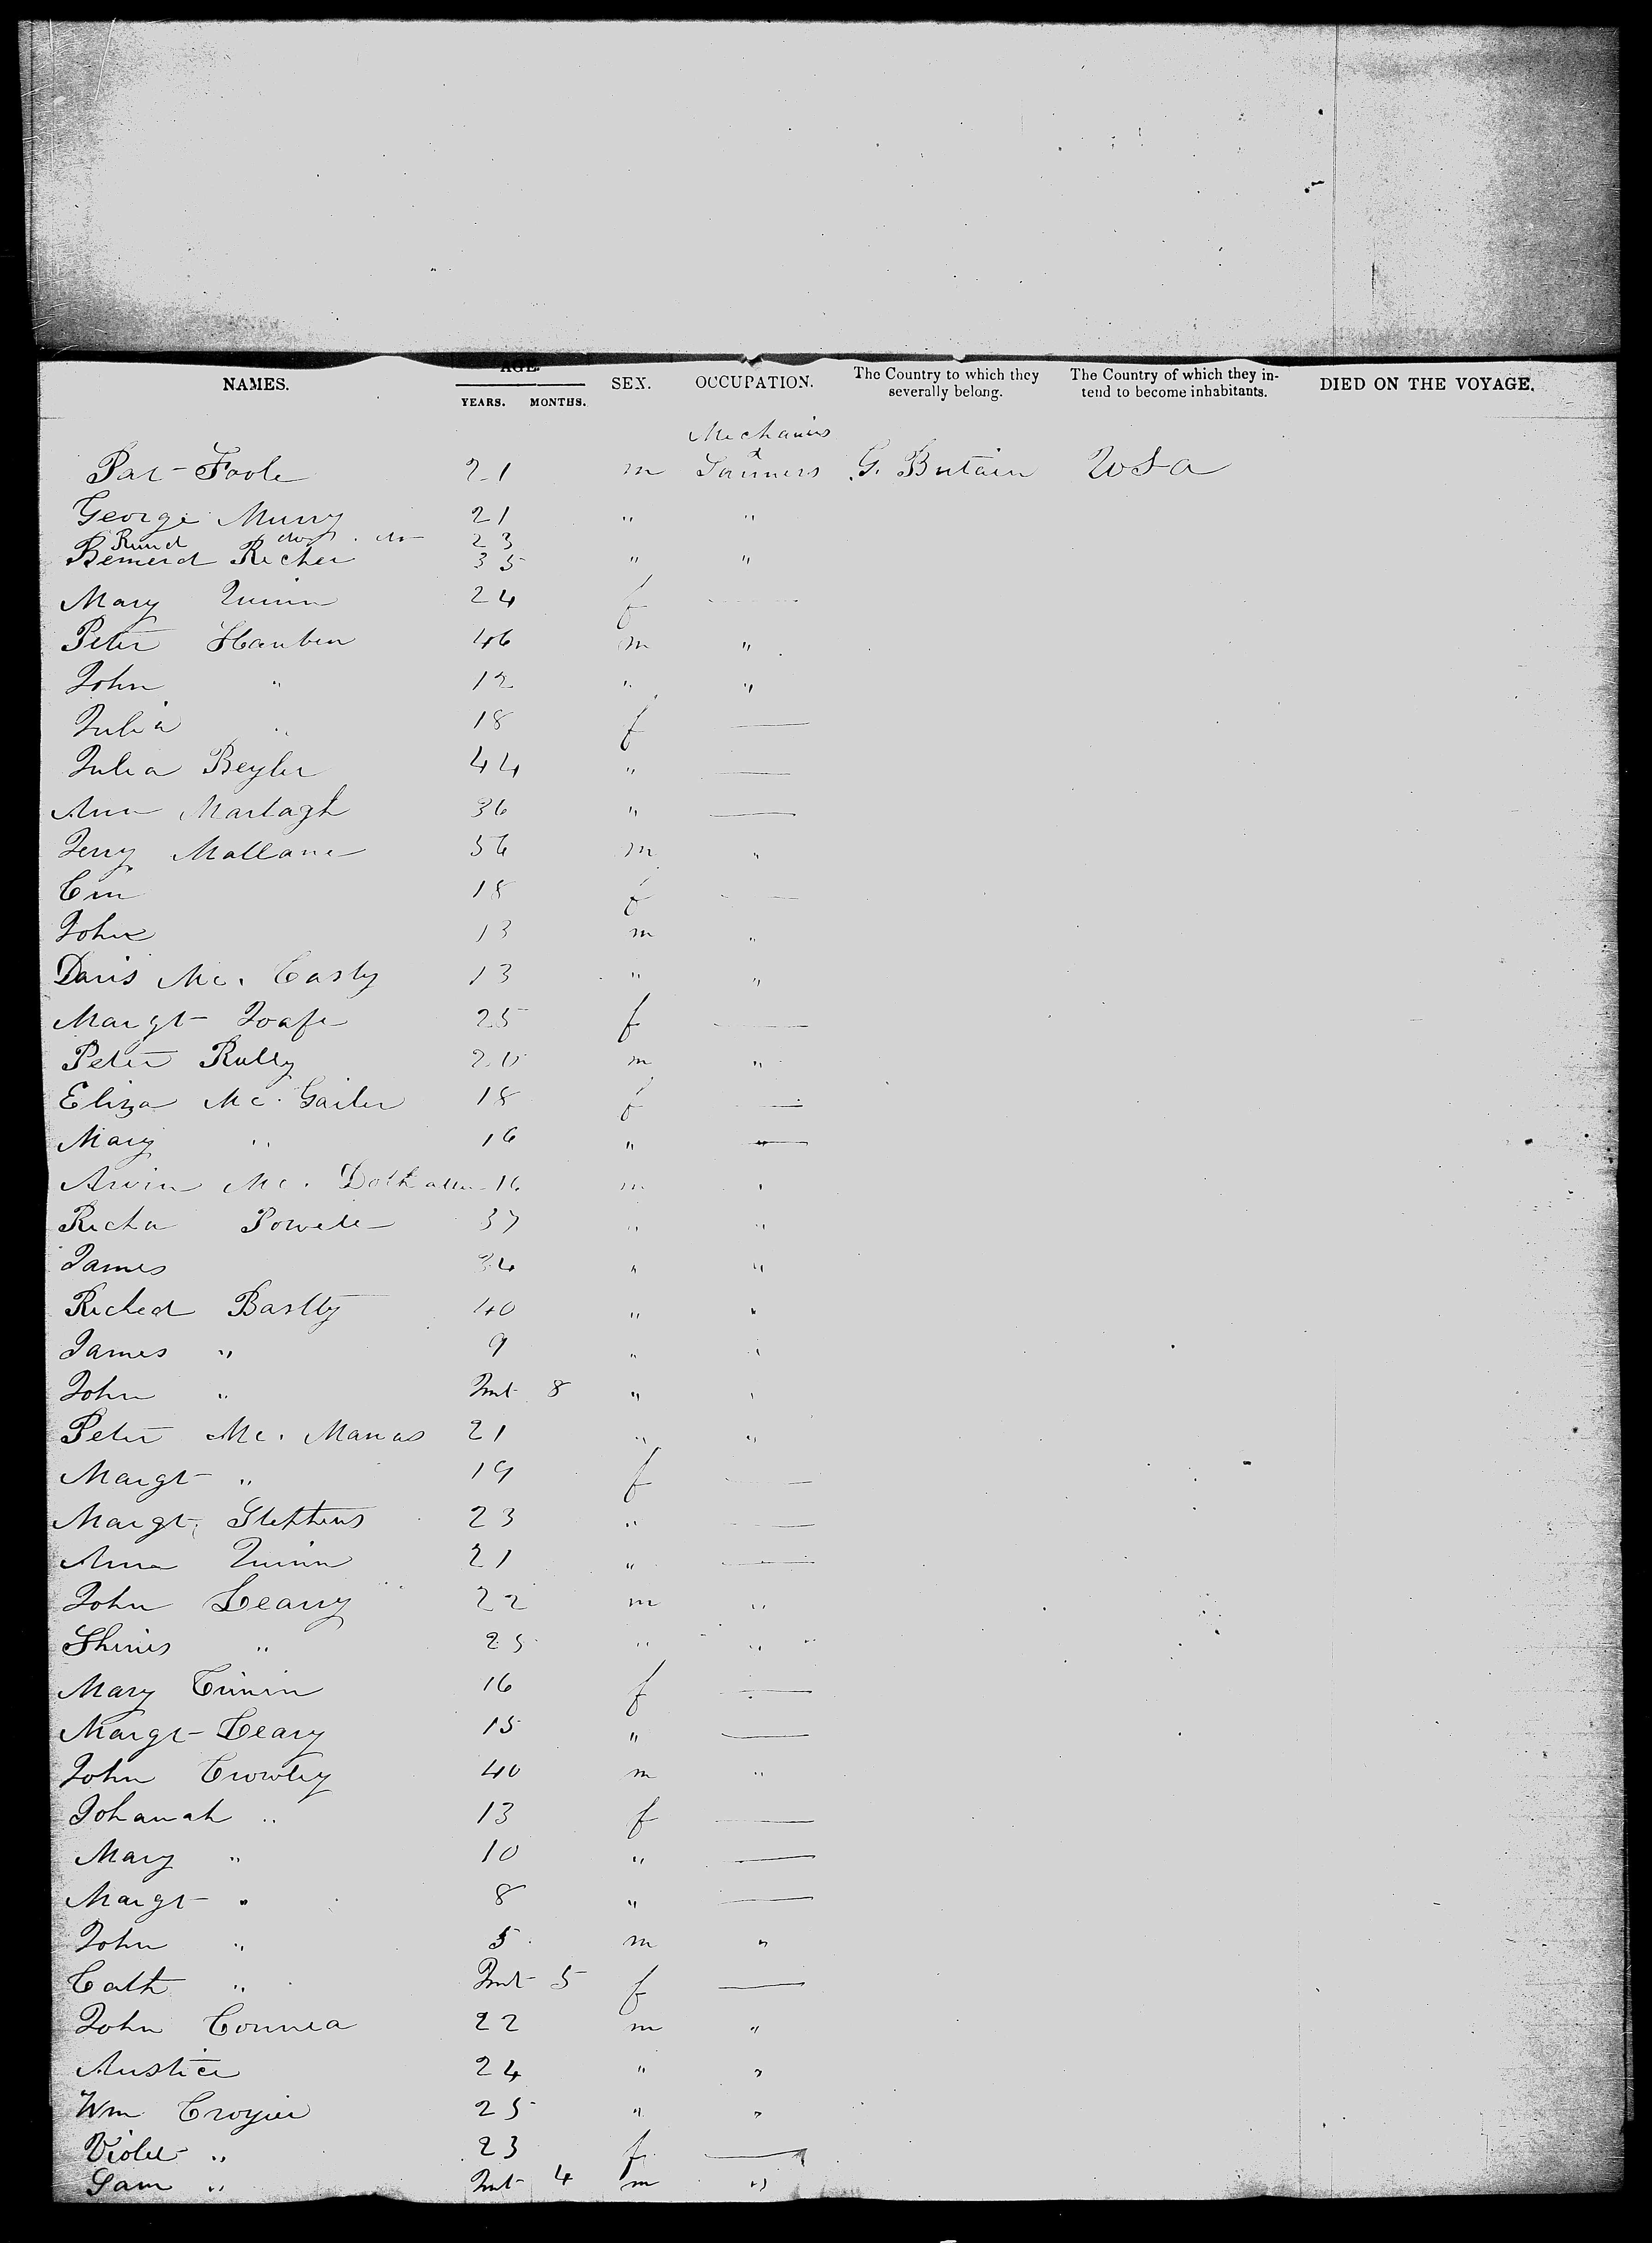 NAMES. AGE. SEX. OCCUPATION. The Country to which they severally belong. The Country of which they intend to become inhabitants. DIED ON THE VOYAGE.
YEARS. MONTHS.
Mechanics
&
Pat Foole 21 m Farmers G. Britain USA
George Murry 21 " "
Rund do do 23
Bernerd Richer 35 " "
Mary Quinn 24 f —
Peter Hanben 46 m "
John " 12 " "
Julia " 18 f —
Julia Beyler 44 " —
Ann Martagh 36 " —
Jerry Mallane 56 m "
Cm 18 f —
John 13 m "
Davis Mc. Casty 13 " "
Margt Joafe 25 f —
Peter Rully 20 m "
Eliza Mc. Gailer 18 f —
Mary " 16 " —
Mc. 16 m "
Richa Powele 37 " "
James 34 " "
Riched Bastty 40 " "
James " 9 " "
John " Inft 8 " "
Peter Mc. Manas 21 " "
Margt " 19 f —
Margt Stephens 23 " —
Ann Quinn 21 " —
John Leary 22 m "
" 25 " "
Mary Crimin 16 f —
Margt Leary 15 " —
John Crowley 40 m "
Johanah " 13 f —
Mary " 10 " —
Margt " 8 " —
John " 5 m "
Cath " Inft 5 f —
John Connea 22 m "
Austice 24 " "
Wm Crozier 25 " "
Violet " 23 f —
Sam " Inft 4 m "